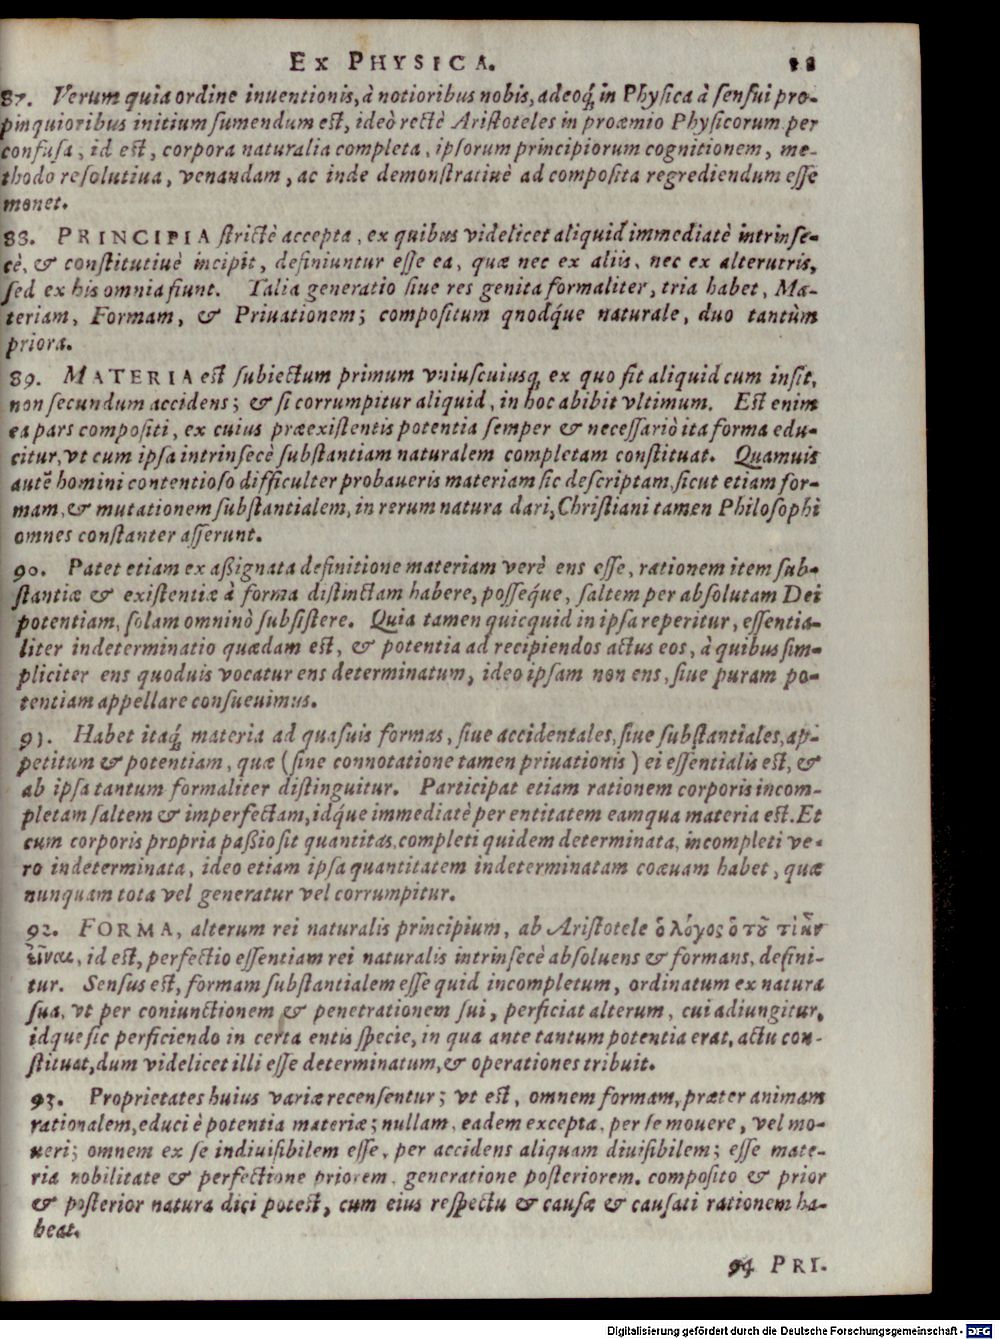 EX PHYSICA.
87. Verum quia ordine inuentionis, à notioribus nobis, adeoq́; in Physica à sensui pro-
pinquioribus initium sumendum est, ideò rectè Aristoteles in proæmio Physicorum per
confusa, id est, corpora naturalia completa, ipsorum principiorum cognitionem, me-
thodo resolutiua, venandam, ac inde demonstratiuè ad composita regrediendum esse
monet.
88. PRINCIPIA strictè accepta, ex quibus videlicet aliquid immediatè intrinse-
cè, & constitutiuè incipit, definiuntur esse ea, quæ nec ex aliis, nec ex alterutris,
sed ex his omnia fiunt. Talia generatio siue res genita formaliter, tria habet, Ma-
teriam, Formam, & Priuationem; compositum qnodq́ue naturale, duo tantùm
priora.
89. MATERIA est subiectum primum vniuscuiusq; ex quo fit aliquid cum insit,
non secundum accidens; & si corrumpitur aliquid, in hoc abibit vltimum. Est enim
ea pars compositi, ex cuius præexistentis potentia semper & necessariò ita forma edu-
citur, vt cum ipsa intrinsecè substantiam naturalem completam constituat. Quamuis
autẽ homini contentioso difficulter probaueris materiam sic descriptam, sicut etiam for-
mam, & mutationem substantialem, in rerum natura dari, Christiani tamen Philosophi
omnes constanter asserunt.
90. Patet etiam ex aßignata definitione materiam verè ens esse, rationem item sub-
stantiæ & existentiæ à forma distinctam habere, posseq́ue, saltem per absolutam Dei
potentiam, solam omninò subsistere. Quia tamen quicquid in ipsa reperitur, essentia-
liter indeterminatio quædam est, & potentia ad recipiendos actus eos, à quibus sim-
pliciter ens quoduis vocatur ens determinatum, ideo ipsam non ens, siue puram po-
tentiam appellare consueuimus.
91. Habet itaq́; materia ad quasuis formas, siue accidentales, siue substantiales, ap-
petitum & potentiam, quæ (sine connotatione tamen priuationis) ei essentialis est, &
ab ipsa tantum formaliter distinguitur. Participat etiam rationem corporis incom-
pletam saltem & imperfectam, idq́ue immediatè per entitatem eamqua materia est. Et
cum corporis propria paßio sit quantitas, completi quidem determinata, incompleti ve-
ro indeterminata, ideo etiam ipsa quantitatem indeterminatam coæuam habet, quæ
nunquam tota vel generatur vel corrumpitur.
92. FORMA, alterum rei naturalis principium, ab Aristotele ὁ λόγος ὁ τοῦ τί ἦν
εἶναι, id est, perfectio essentiam rei naturalis intrinsecè absoluens & formans, defini-
tur. Sensus est, formam substantialem esse quid incompletum, ordinatum ex natura
sua, vt per coniunctionem & penetrationem sui, perficiat alterum, cui adiungitur,
idque sic perficiendo in certa entis specie, in qua ante tantum potentia erat, actu con-
stituat, dum videlicet illi esse determinatum, & operationes tribuit.
93. Proprietates huius variæ recensentur; vt est, omnem formam, præter animam
rationalem, educi è potentia materiæ; nullam, eadem excepta, per se mouere, vel mo-
ueri; omnem ex se indiuisibilem esse, per accidens aliquam diuisibilem; esse mate-
ria nobilitate & perfectione priorem, generatione posteriorem. composito & prior
& posterior natura dici potest, cum eius respectu & causæ & causati rationem ha-
beat.
94 PRI.
Digitalisierung gefördert durch die Deutsche Forschungsgemeinschaft - DFG